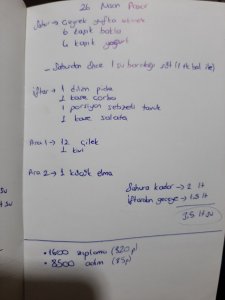 26 Nisan Pazar
Sahur → Çeyrek yufka ekmek
6 kaşık bakla
4 kaşık yoğurt
- Sahurdan önce 1 su bardağı süt (1 tk bal ile)
İftar → 1 dilim pide
1 kase çorba
1 porsiyon sebzeli tavuk
1 kase salata
Ara 1 → 12 çilek
1 kivi
Ara 2 → 1 küçük elma
Sahura kadar → 2 lt
İftardan geceye → 1.5 lt
3.5 lt su
• 1600 zıplama (320p)
• 8500 adım (85p)